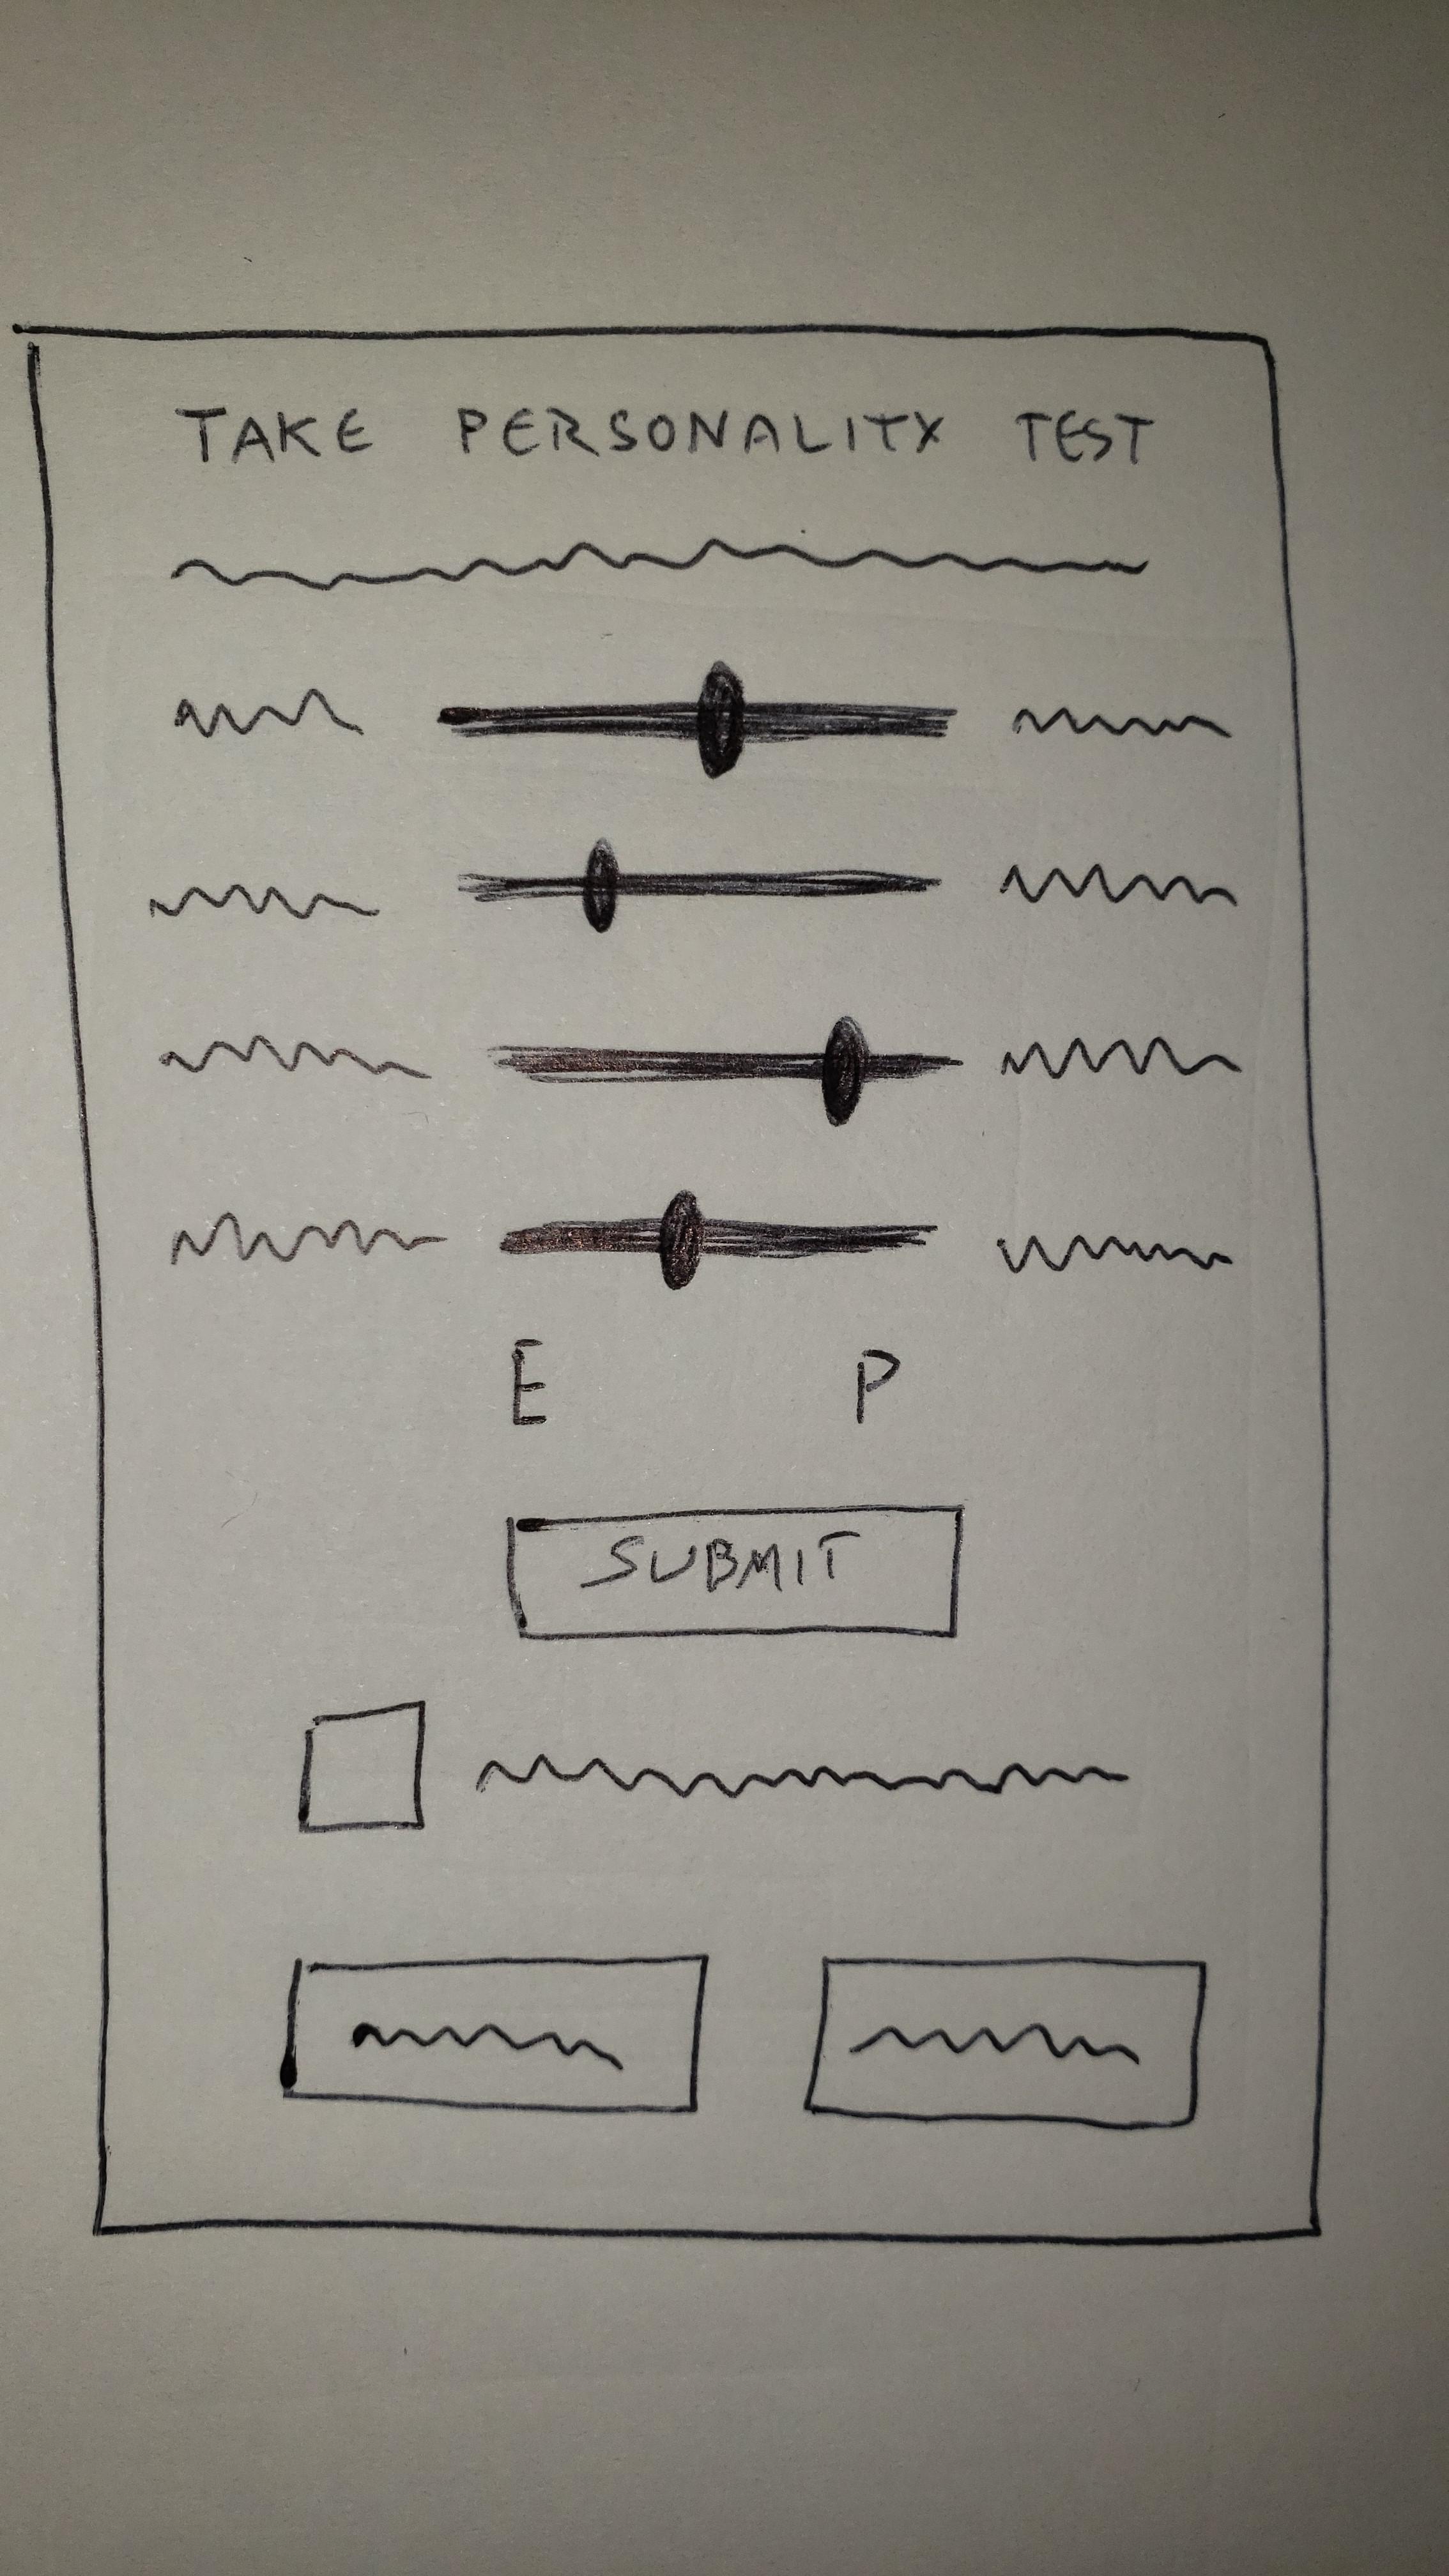 TAKE PERSONALITY TEST
E P
SUBMIT